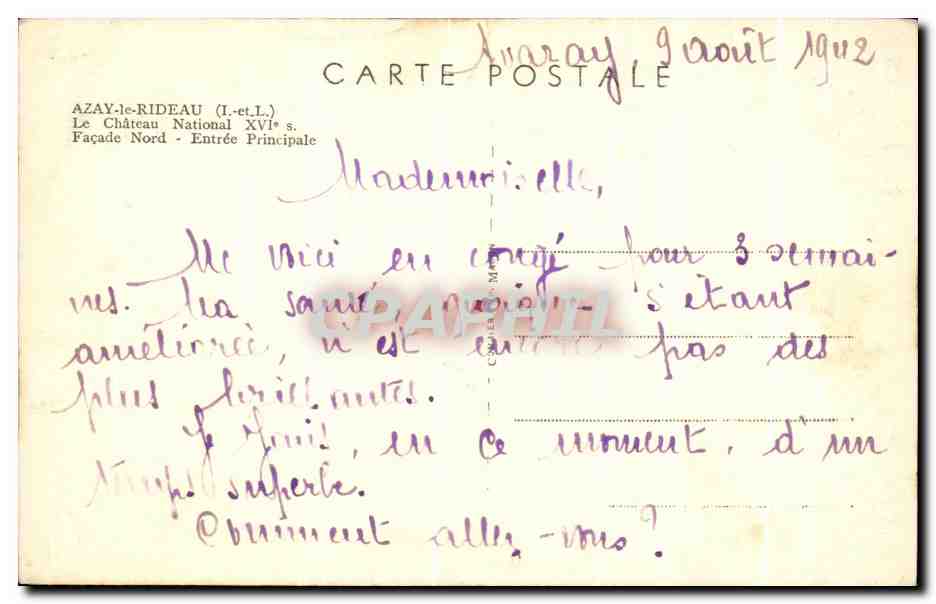 9 août 19
CARTE POSTALE
AZAY-le-RIDEAU (I.-et-L.)
Le Château National XVIe s.
Façade Nord - Entrée Principale
Mademoiselle,
Me voici en congé pour 3 semai-
nes. Ma santé, quoique s'étant
améliorée, n'est encore pas des
plus brillantes.
Je jouis, en ce moment, d'un
temps superbe.
Comment allez-vous?
CPAPHIL